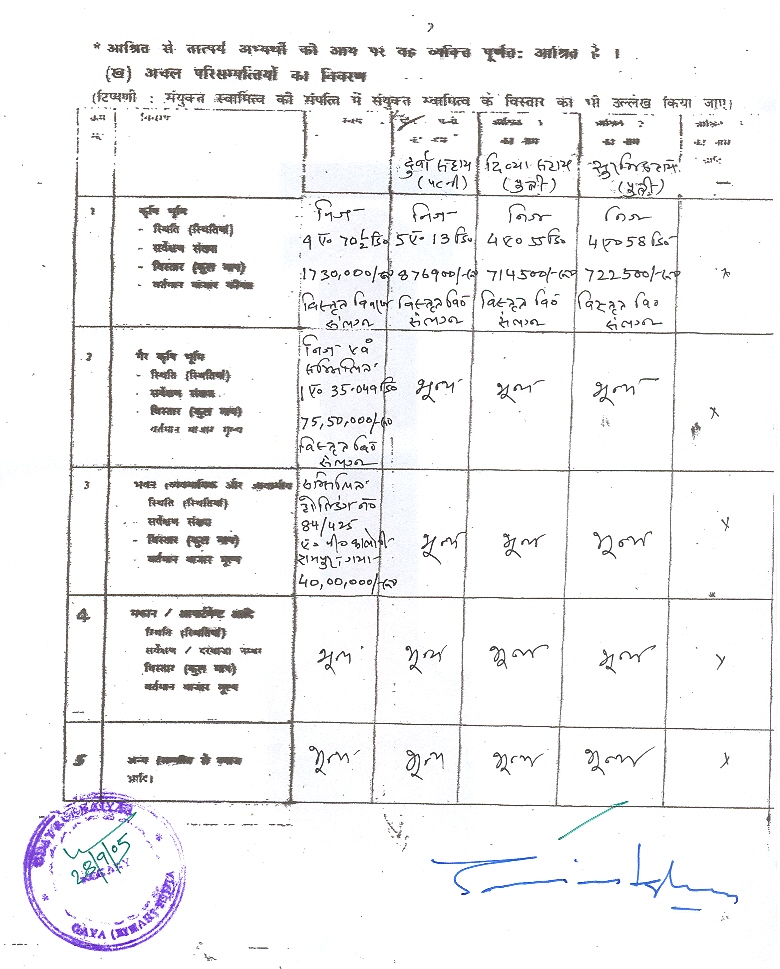 2
* आश्रित से तात्पर्य अभ्यर्थी की आय पर वह व्यक्ति पूर्णतः आश्रित है ।
(ख) अचल परिसम्पत्तियों का विवरण
(टिप्पणी : संयुक्त स्वामित्व की संपत्ति में संयुक्त स्वामित्व के विस्तार का भी उल्लेख किया जाए)
क्रम सं० विवरण स्वयं पत्नी का नाम आश्रित 1 का नाम आश्रित 2 का नाम आश्रित 3 का नाम आदि
दुर्वा सहाय (पत्नी) दिव्या सहाय (पुत्री) (पुत्री) —
1 कृषि भूमि निज निज निज निज
- स्थिति (स्थितियाँ) 9 ए० 70½ डि० 5 ए० 13 डि० 4 ए० 55 डि० 4 ए० 58 डि०
- सर्वेक्षण संख्या
- विस्तार (कुल माप) 1730,000/-रु० 876900/-रु० 714500/-रु० 722500/-रु० x
- वर्तमान बाजार कीमत विस्तृत विवरण संलग्न विस्तृत वि० संलग्न विस्तृत वि० संलग्न विस्तृत वि० संलग्न
2 गैर कृषि भूमि निज एवं सम्मिलित
- स्थिति (स्थितियाँ)
- सर्वेक्षण संख्या 1 ए० 35.049 डि० शून्य शून्य शून्य x
- विस्तार (कुल माप) 75,50,000/-रु०
वर्तमान बाजार मूल्य विस्तृत वि० संलग्न
3 भवन (व्यवसायिक और आवासीय) सम्मिलित
स्थिति (स्थितियाँ) होल्डिंग नं०
- सर्वेक्षण संख्या 84/425 x
- विस्तार (कुल माप) ए० पी० कालोनी शून्य शून्य शून्य
- वर्तमान बाजार मूल्य रामपुर गया
40,00,000/-रु०
4 मकान / अपार्टमेंट आदि
स्थिति (स्थितियाँ)
सर्वेक्षण / दरवाजा नम्बर शून्य शून्य शून्य शून्य x
विस्तार (कुल माप)
वर्तमान बाजार मूल्य
5 अन्य (सम्पत्ति से हित शून्य शून्य शून्य शून्य x
आदि)
28/9/05
NOTARY
GAYA (BIHAR) INDIA